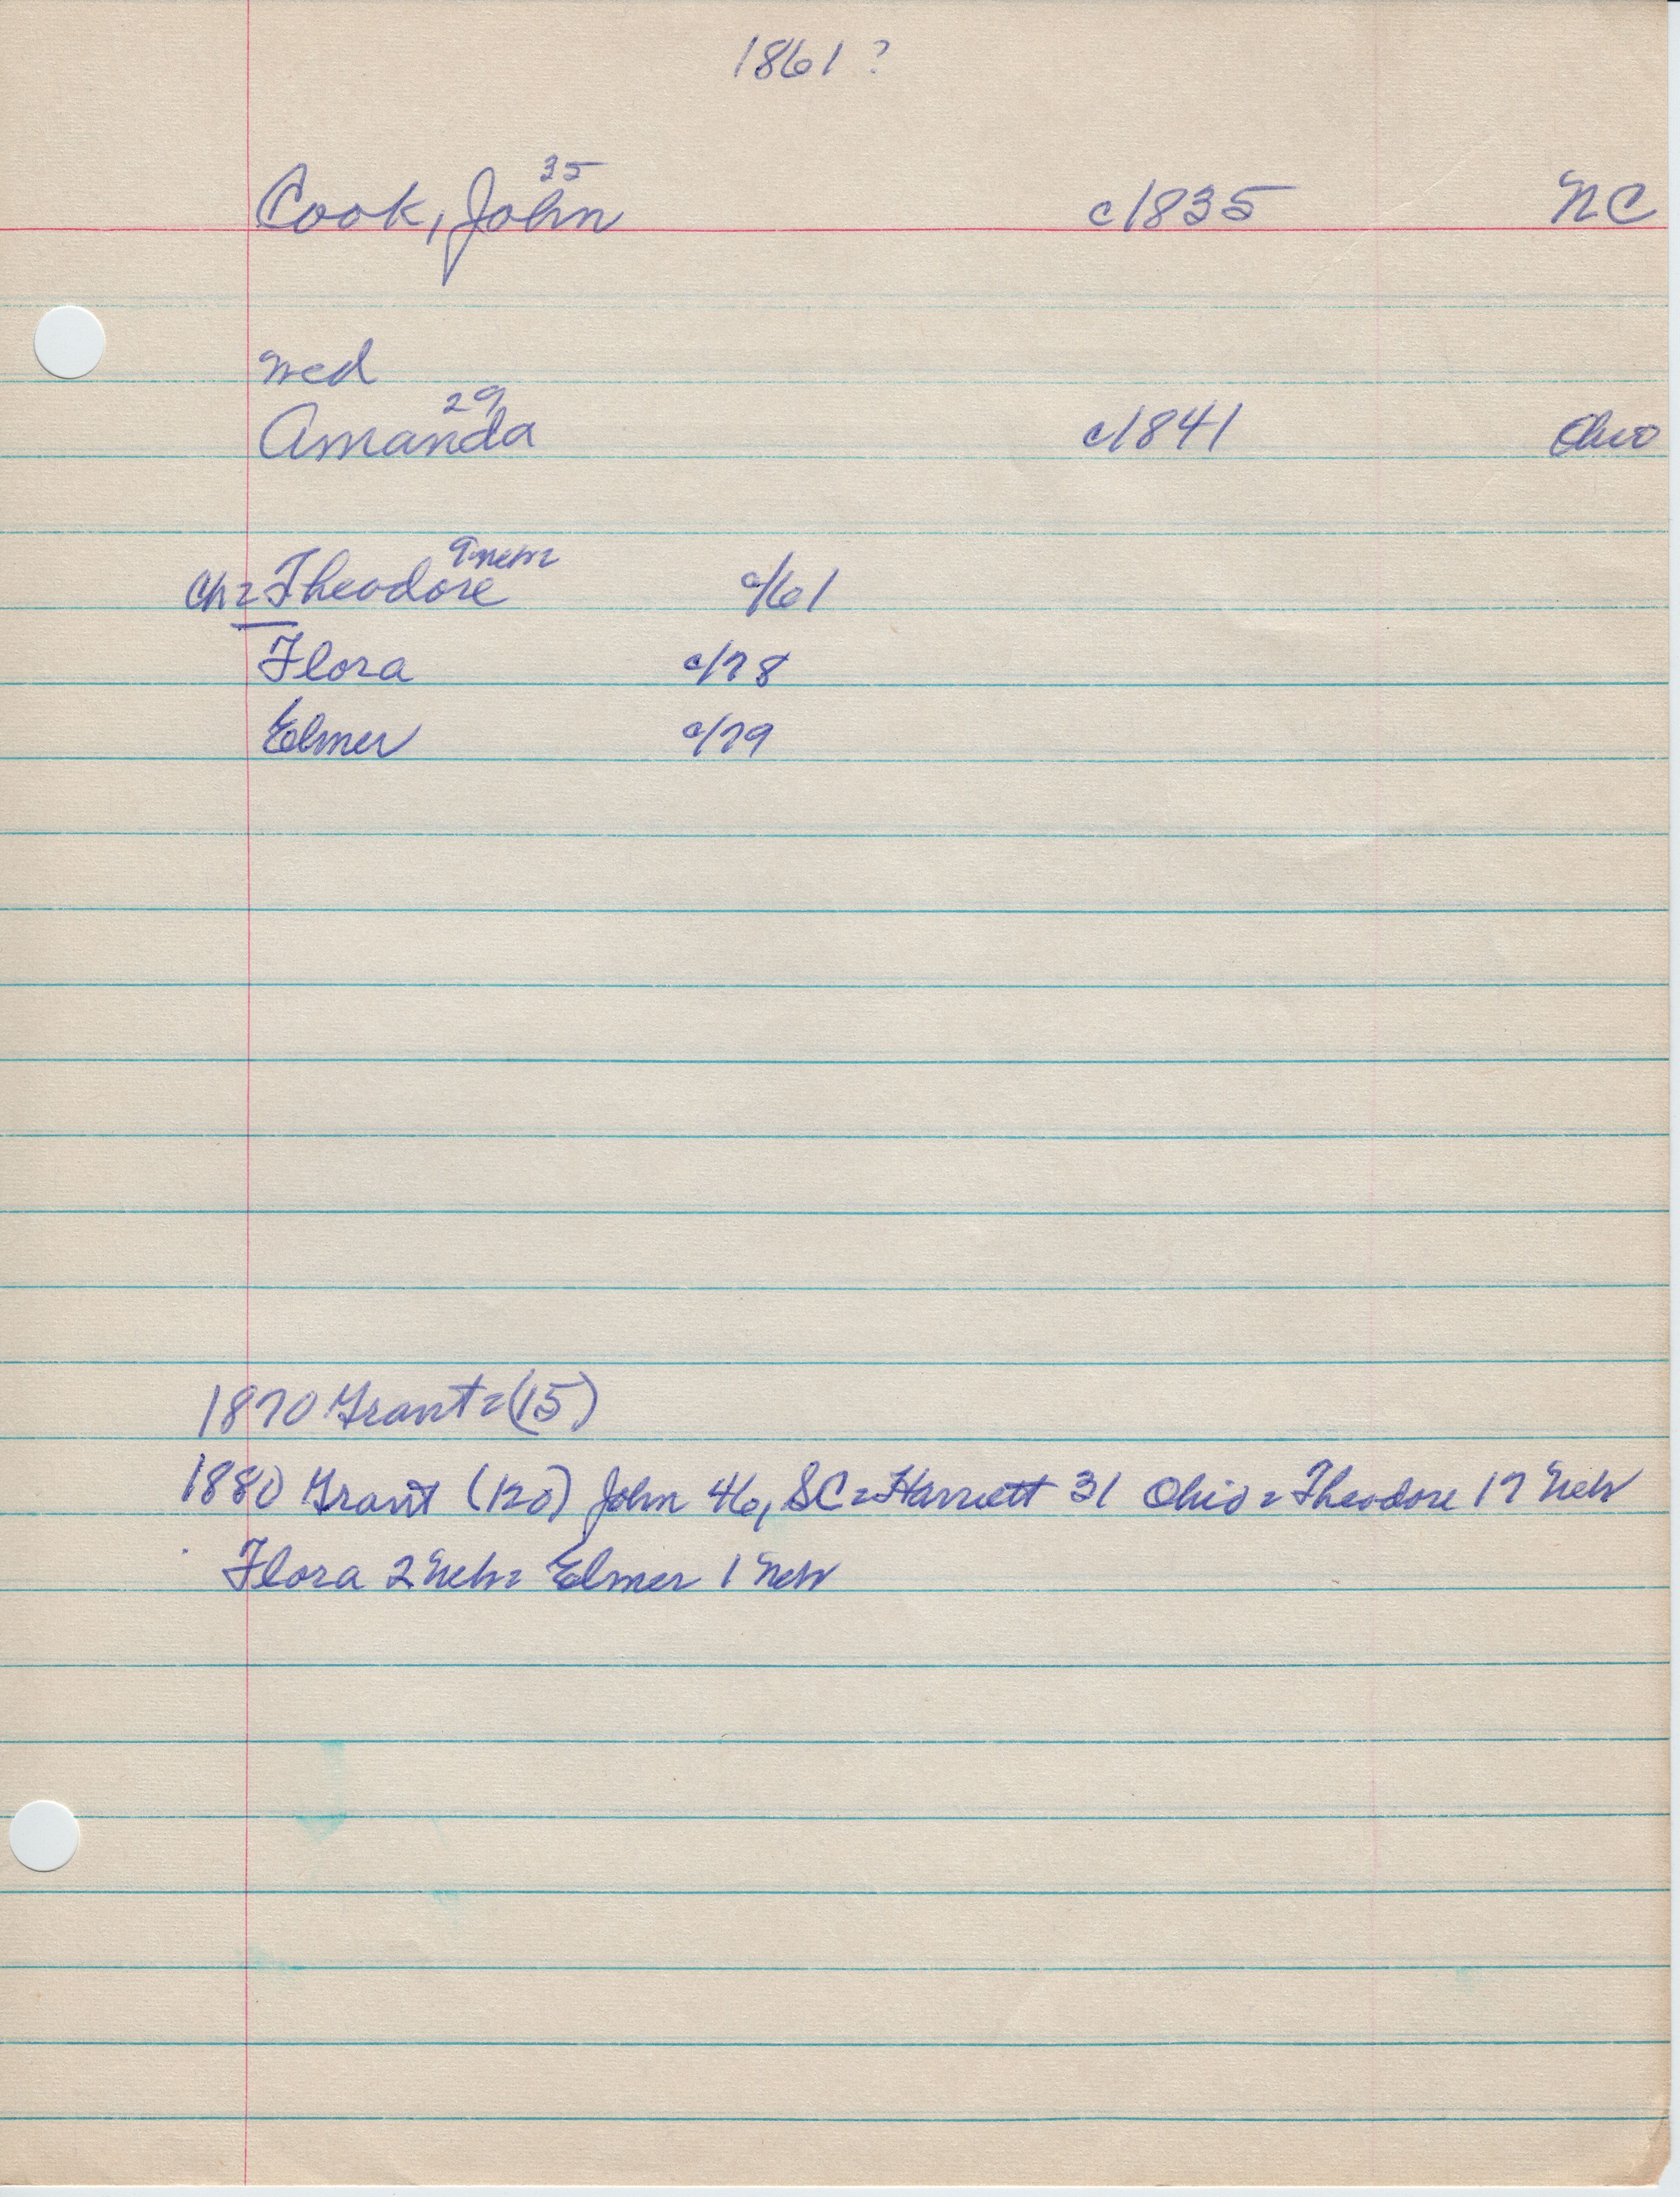 1861?
35
Cook, John c1835 NC
wed
29
Amanda c1841 Ohio
9 neb=
Ch= Theodore c/61
Flora c/78
Elmer c/79
1870 Grant = (15)
1880 Grant (120) John 46, SC = Harriett 31 Ohio = Theodore 17 Neb
Flora 2 Neb = Elmer 1 Neb